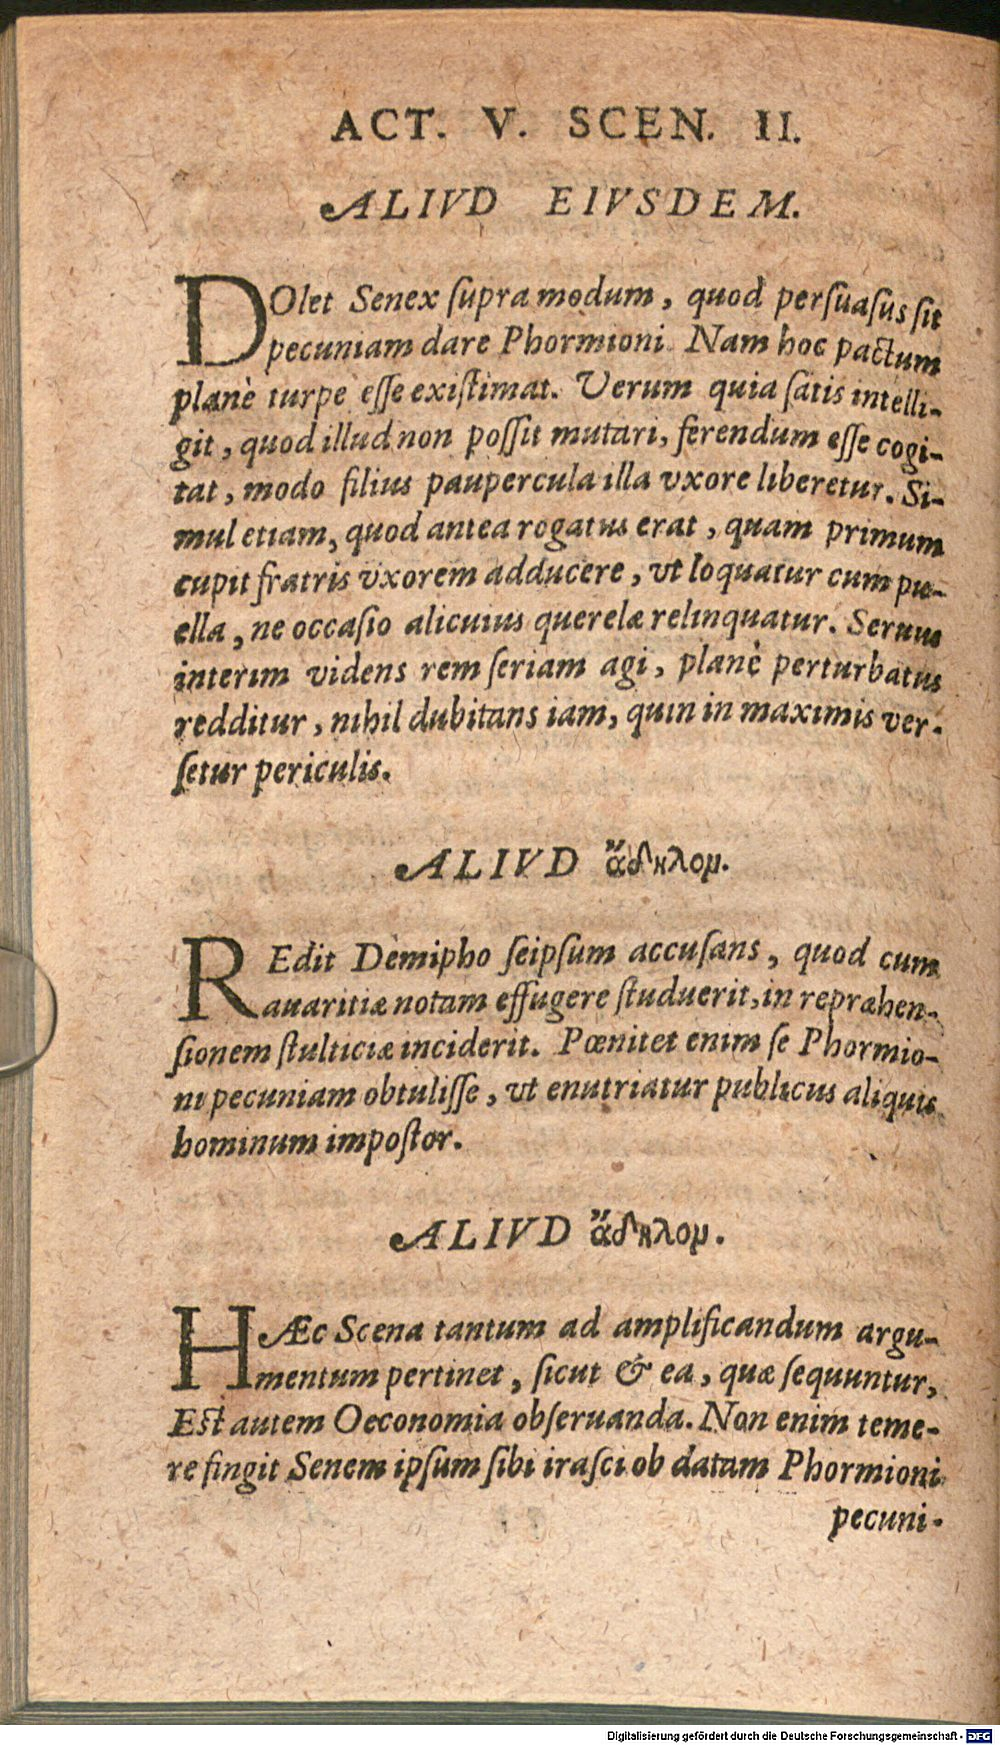 ACT. V. SCEN. II.
ALIVD EIVSDEM.
DOlet Senex ſupra modum, quod perſuaſus ſit
pecuniam dare Phormioni. Nam hoc pactum
planè turpe eſſe exiſtimat. Verum quia ſatis intelli-
git, quod illud non poſſit mutari, ferendum eſſe cogi-
tat, modo filius paupercula illa vxore liberetur. Si-
mul etiam, quod antea rogatus erat, quam primum
cupit fratris vxorem adducere, vt loquatur cum pu-
ella, ne occaſio alicuius querelæ relinquatur. Seruus
interim videns rem ſeriam agi, planè perturbatus
redditur, nihil dubitans iam, quin in maximis ver-
ſetur periculis.
ALIVD ἄδηλον.
REdit Demipho ſeipſum accuſans, quod cum
auaritiæ notam effugere ſtuduerit, in repræhen-
ſionem ſtulticiæ inciderit. Pœnitet enim ſe Phormio-
ni pecuniam obtuliſſe, vt enutriatur publicus aliquis
hominum impoſtor.
ALIVD ἄδηλον.
HÆc Scena tantum ad amplificandum argu-
mentum pertinet, ſicut & ea, quæ ſequuntur,
Eſt autem Oeconomia obſeruanda. Non enim teme-
re fingit Senem ipſum ſibi iraſci ob datam Phormioni
pecuni-
Digitalisierung gefördert durch die Deutsche Forschungsgemeinschaft - DFG